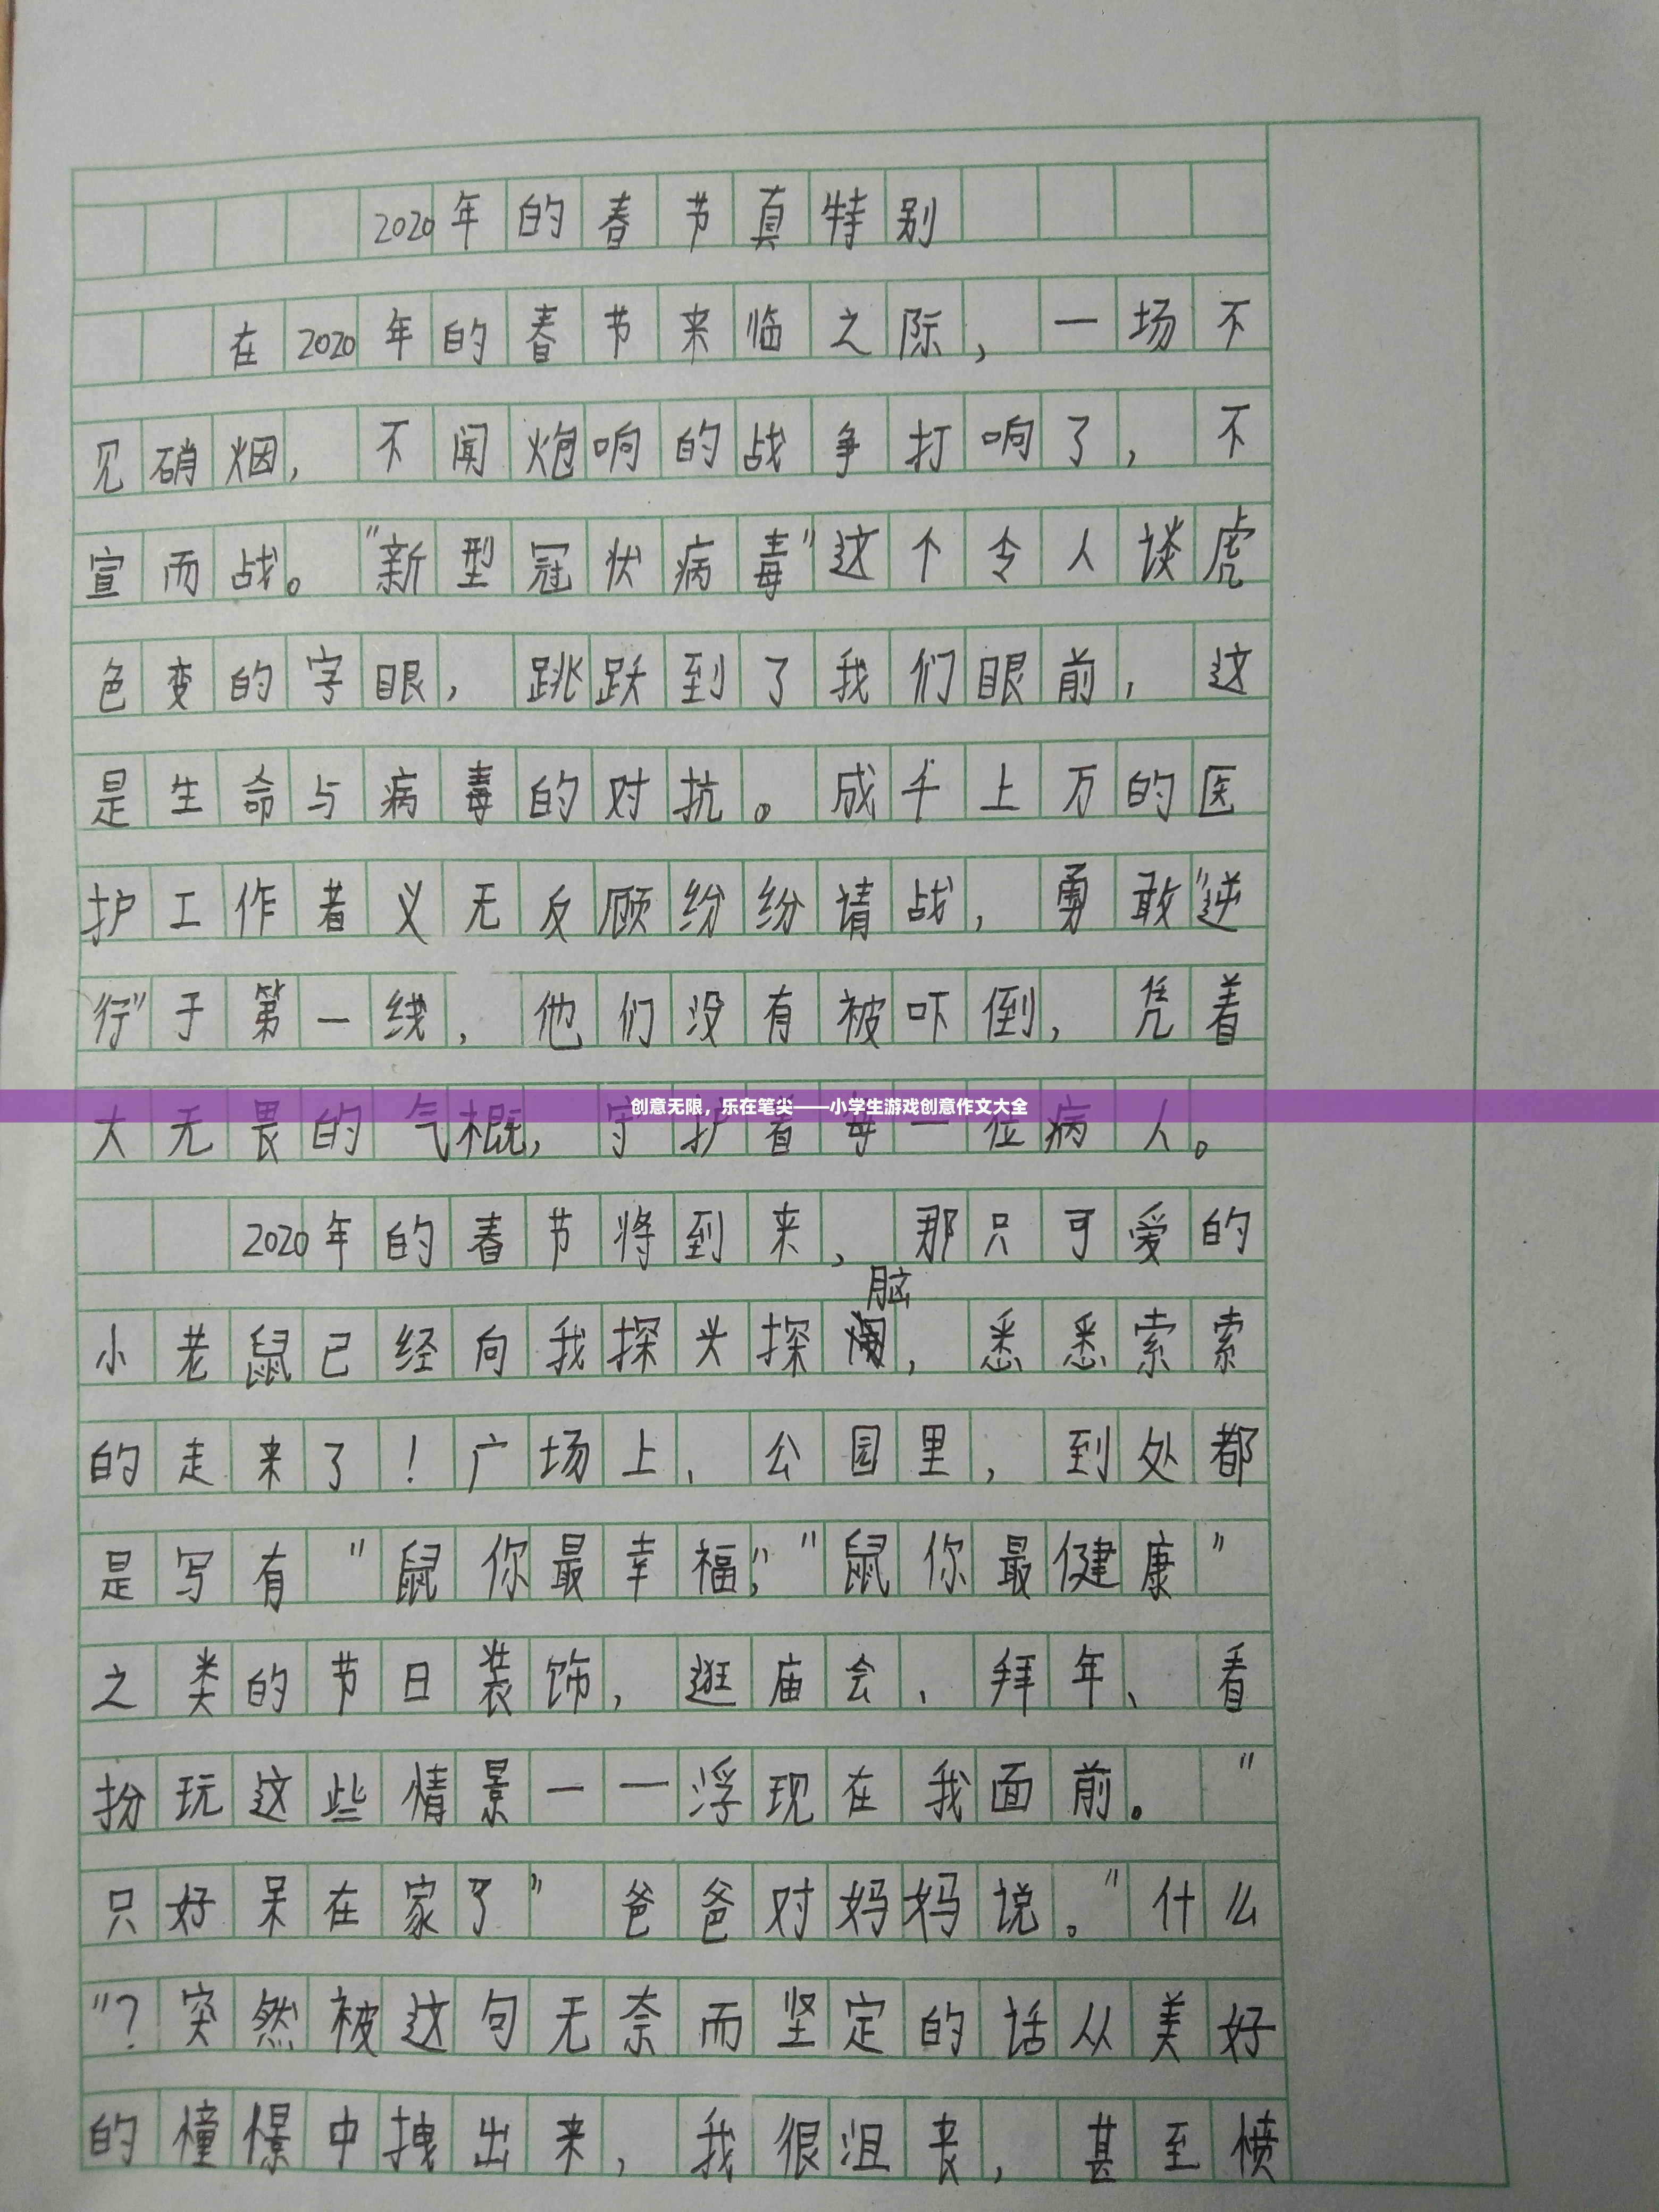 2020年的春节真特别
在2020年的春节来临之际，一场不
见硝烟，不闻炮响的战争打响了，不
宣而战。“新型冠状病毒”这个令人谈虎
色变的字眼，跳跃到了我们眼前，这
是生命与病毒的对抗。成千上万的医
护工作者义无反顾纷纷请战，勇敢“逆
行”于第一线，他们没有被吓倒，凭着
创意无限，乐在笔尖——小学生游戏创意作文大全
大无畏的气概，守护着每一位病人。
2020年的春节将到来，那只可爱的
小老鼠已经向我探头探脑，悉悉索索
的走来了！广场上、公园里，到处都
是写有“鼠你最幸福”，“鼠你最健康”
之类的节日装饰，逛庙会、拜年、看
扮玩这些情景一一浮现在我面前。“
只好呆在家了”爸爸对妈妈说。“什么
”？突然被这句无奈而坚定的话从美好
的憧憬中拽出来，我很沮丧，甚至愤